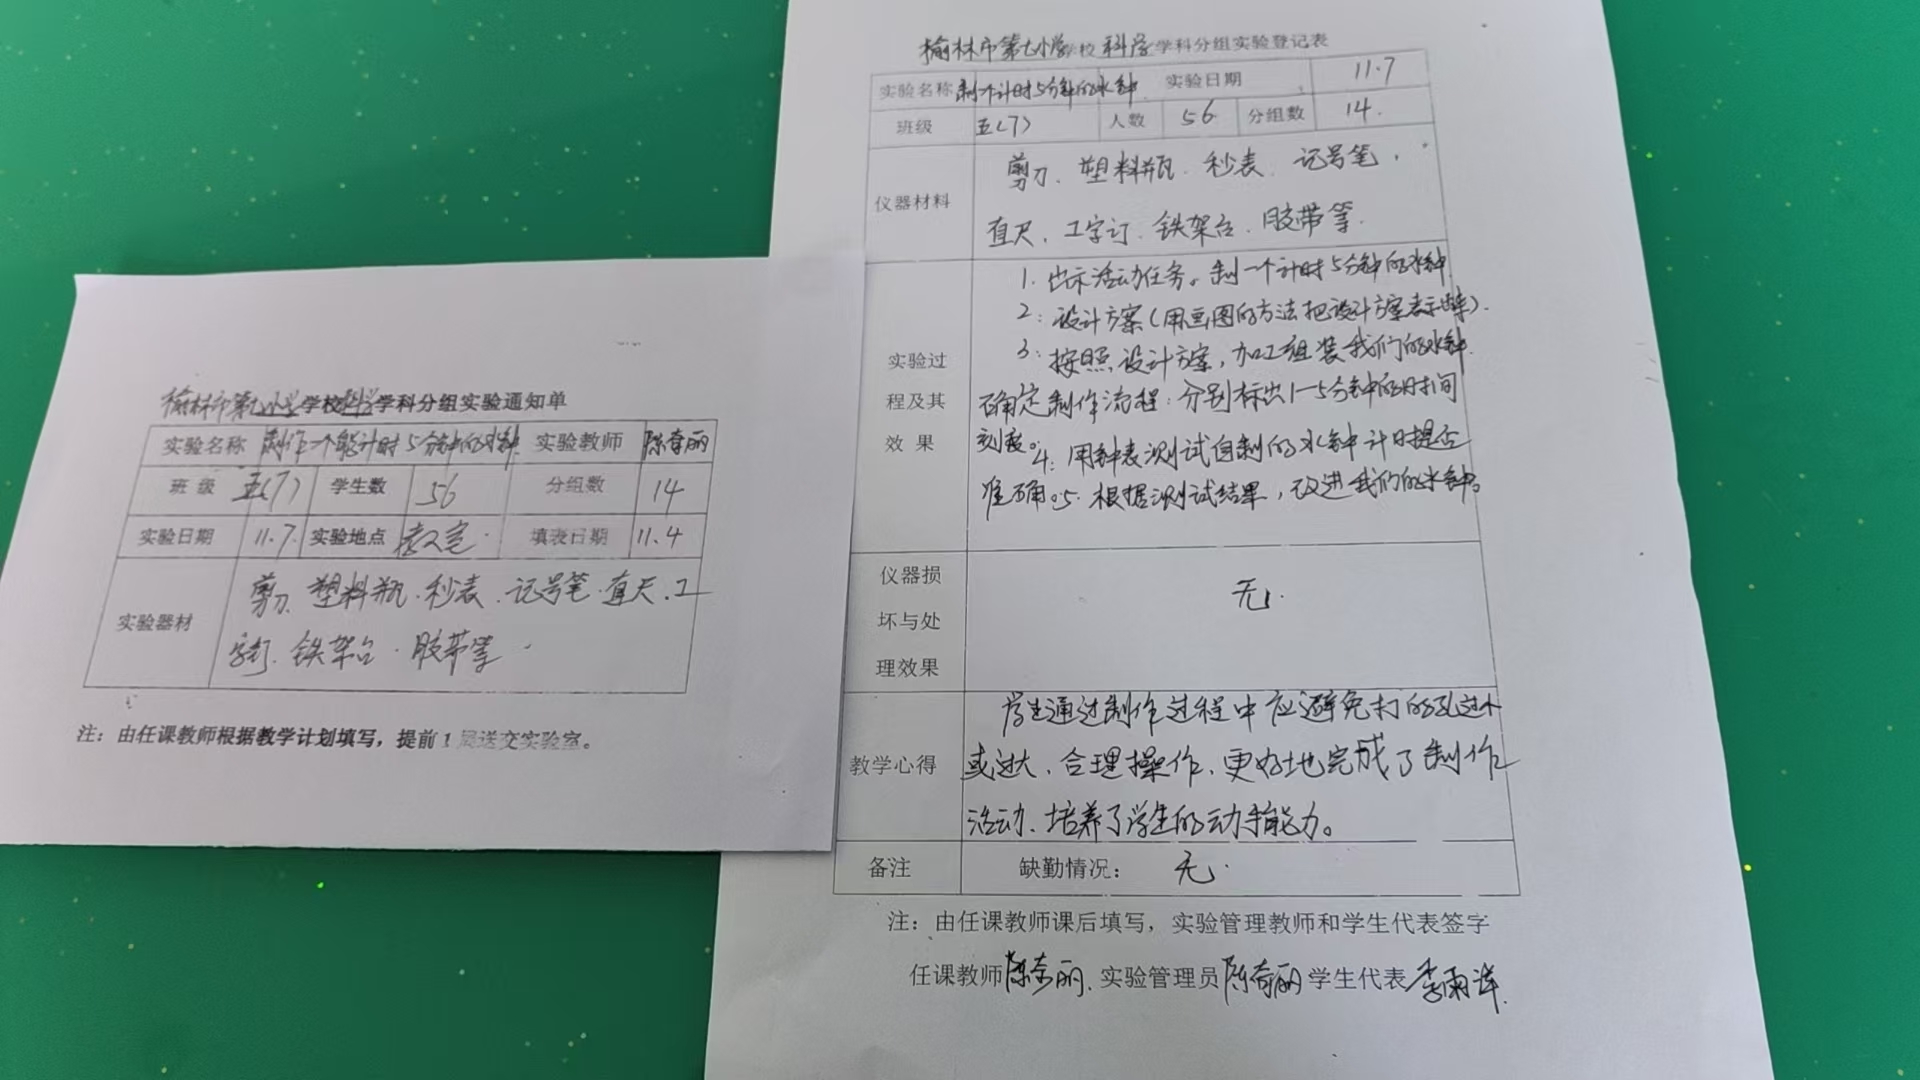 榆林市第七小学学校科学学科分组实验通知单
实验名称 制作一个能计时5分钟的水钟 实验教师 陈奋丽
班 级 五(7) 学生数 56 分组数 14
实验日期 11.7. 实验地点 教室. 填表日期 11.4
实验器材 剪刀、塑料瓶.秒表.记号笔.直尺.工
字钉.铁架台.胶带等.
注：由任课教师根据教学计划填写，提前1周送交实验室。
榆林市第七小学学校 科学学科分组实验登记表
实验名称 制个计时5分钟的水钟 实验日期 11.7
班级 五(7) 人数 56 分组数 14.
仪器材料 剪刀、塑料瓶.秒表、记号笔，
直尺、工字订、铁架台、胶带等.
实验过程及其效果
1. 出示活动任务。制一个计时5分钟的水钟
2：设计方案(用画图的方法把设计方案表示出来).
3：按照设计方案，加工组装我们的水钟.
确定制作流程：分别标出1-5分钟的时间
刻度。4：用钟表测试自制的水钟计时是否
准确。5. 根据测试结果，改进我们的水钟。
仪器损坏与处理效果 无.
教学心得 学生通过制作过程中应避免打的孔过小
或过大、合理操作、更好地完成了制作
活动、培养了学生的动手能力。
备注 缺勤情况： 无.
注：由任课教师课后填写，实验管理教师和学生代表签字
任课教师陈奋丽、实验管理员陈奋丽学生代表李雨洋.